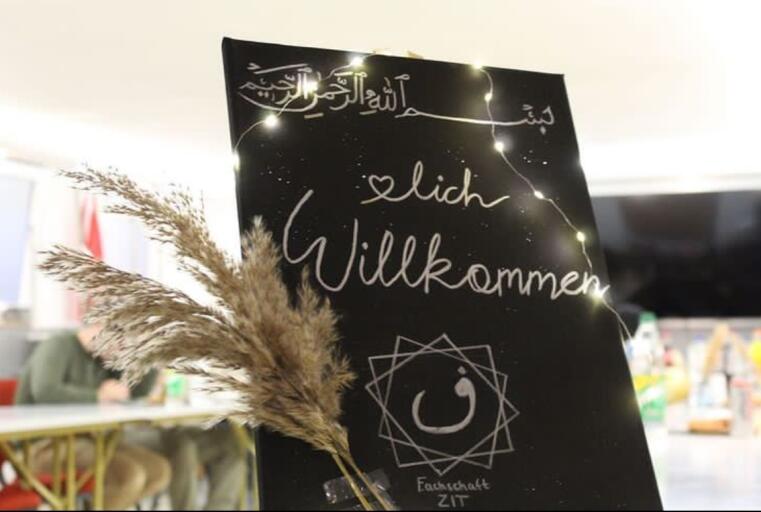 بِسْمِ اللهِ الرَّحْمٰنِ الرَّحِيْمِ
♡lich
Willkommen
ف
Fachschaft
ZIT